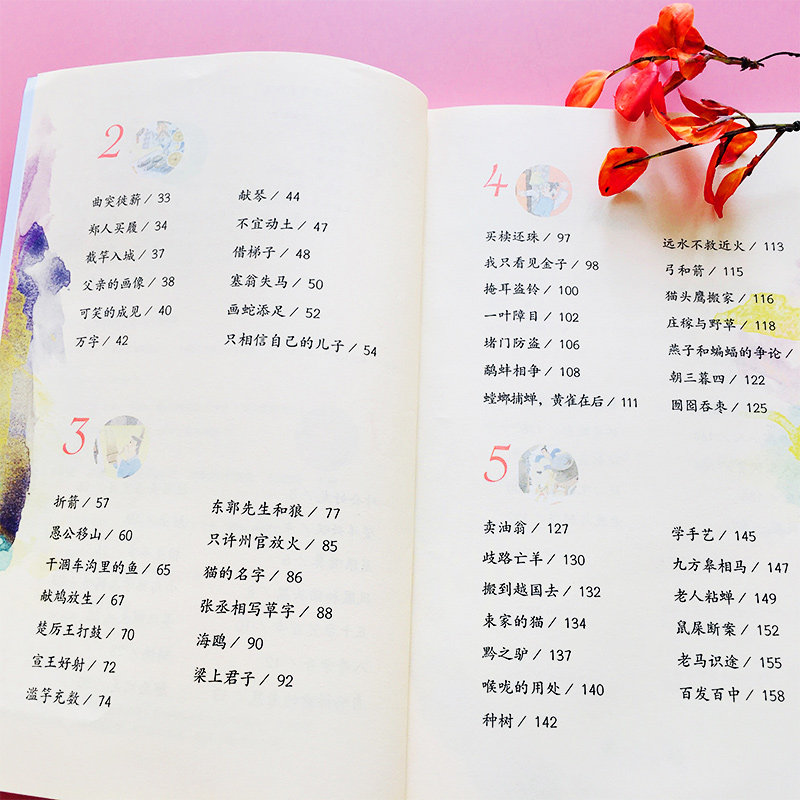 2
曲突徙薪 / 33
郑人买履 / 34
截竿入城 / 37
父亲的画像 / 38
可笑的成见 / 40
万字 / 42
献琴 / 44
不宜动土 / 47
借梯子 / 48
塞翁失马 / 50
画蛇添足 / 52
只相信自己的儿子 / 54
3
折箭 / 57
愚公移山 / 60
干涸车沟里的鱼 / 65
献鸠放生 / 67
楚厉王打鼓 / 70
宣王好射 / 72
滥竽充数 / 74
东郭先生和狼 / 77
只许州官放火 / 85
猫的名字 / 86
张丞相写草字 / 88
海鸥 / 90
梁上君子 / 92
4
买椟还珠 / 97
我只看见金子 / 98
掩耳盗铃 / 100
一叶障目 / 102
堵门防盗 / 106
鹬蚌相争 / 108
螳螂捕蝉，黄雀在后 / 111
远水不救近火 / 113
弓和箭 / 115
猫头鹰搬家 / 116
庄稼与野草 / 118
燕子和蝙蝠的争论 /
朝三暮四 / 122
囫囵吞枣 / 125
5
卖油翁 / 127
歧路亡羊 / 130
搬到越国去 / 132
束家的猫 / 134
黔之驴 / 137
喉咙的用处 / 140
种树 / 142
学手艺 / 145
九方皋相马 / 147
老人粘蝉 / 149
鼠屎断案 / 152
老马识途 / 155
百发百中 / 158